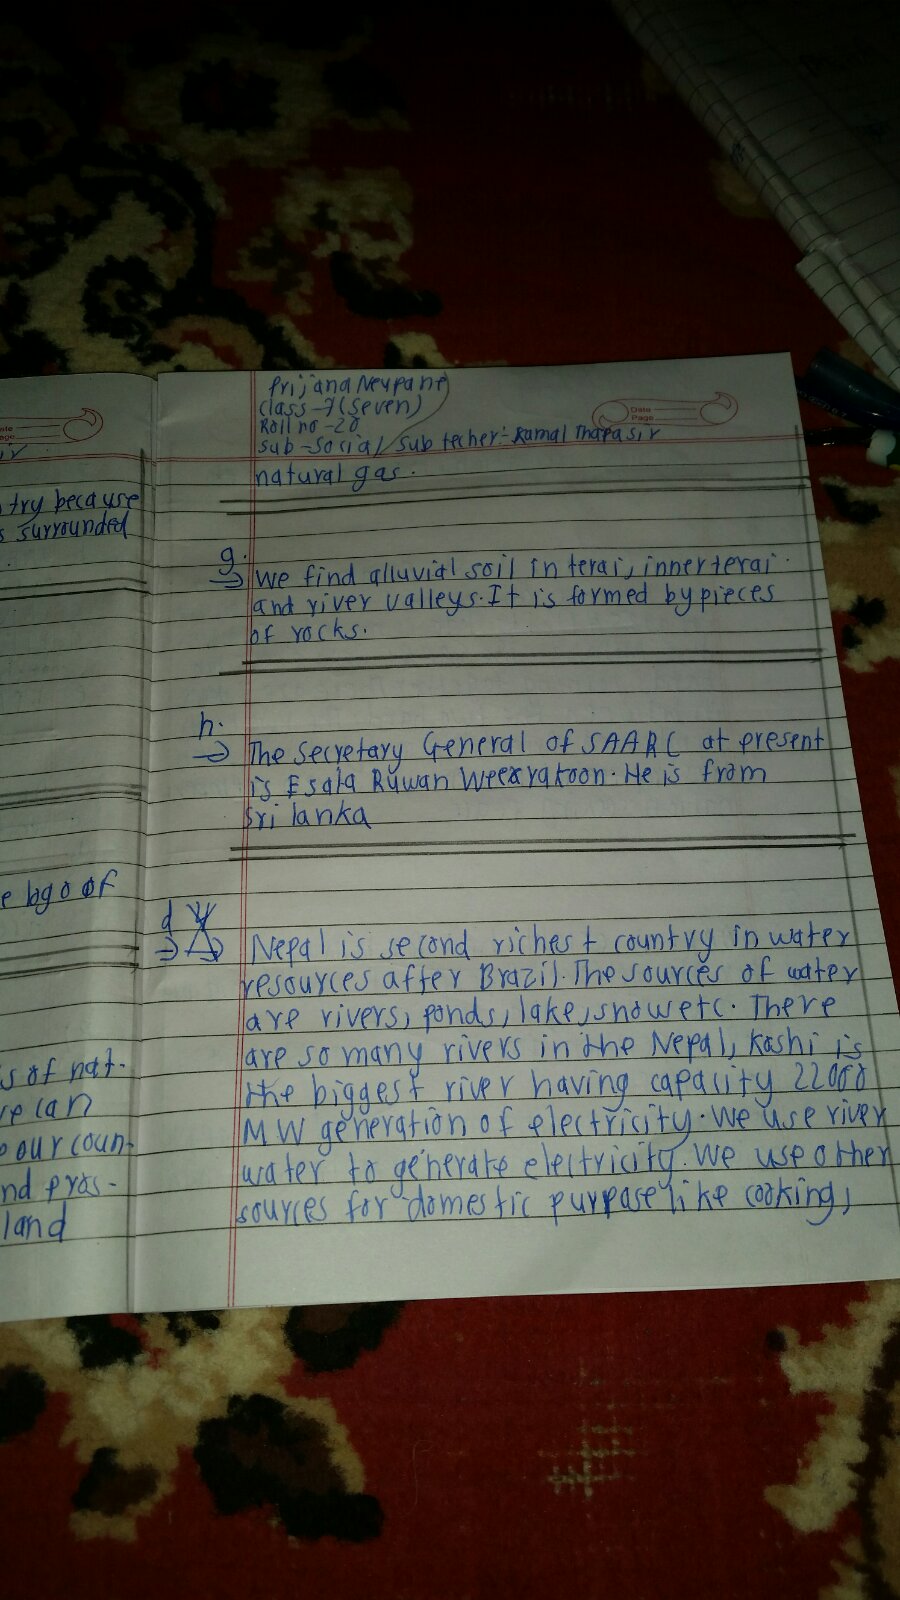 te
age
ir
try because
s surrounded
.
e bgo of
s of nat-
e can
o our coun-
nd pros-
land
Prijana Neupane
class-7(seven)
Roll no-20
Sub-Social/Sub techer:-Ramal Thapa sir
Date
Page
natural gas.
g.
→ We find alluvial soil in terai, inner terai.
and river valleys. It is formed by pieces
of rocks.
h.
→ The secretary General of SAARC at present
is Esala Ruwan Weerakoon. He is from
Sri lanka
d
→ → Nepal is second richest country in water
resources after Brazil. The sources of water
are rivers, ponds, lake, snow etc. There
are so many rivers in the Nepal, koshi is
the biggest river having capacity 22000
MW generation of electricity. We use river
water to generate electricity. We use other
sources for domestic purpase like cooking,